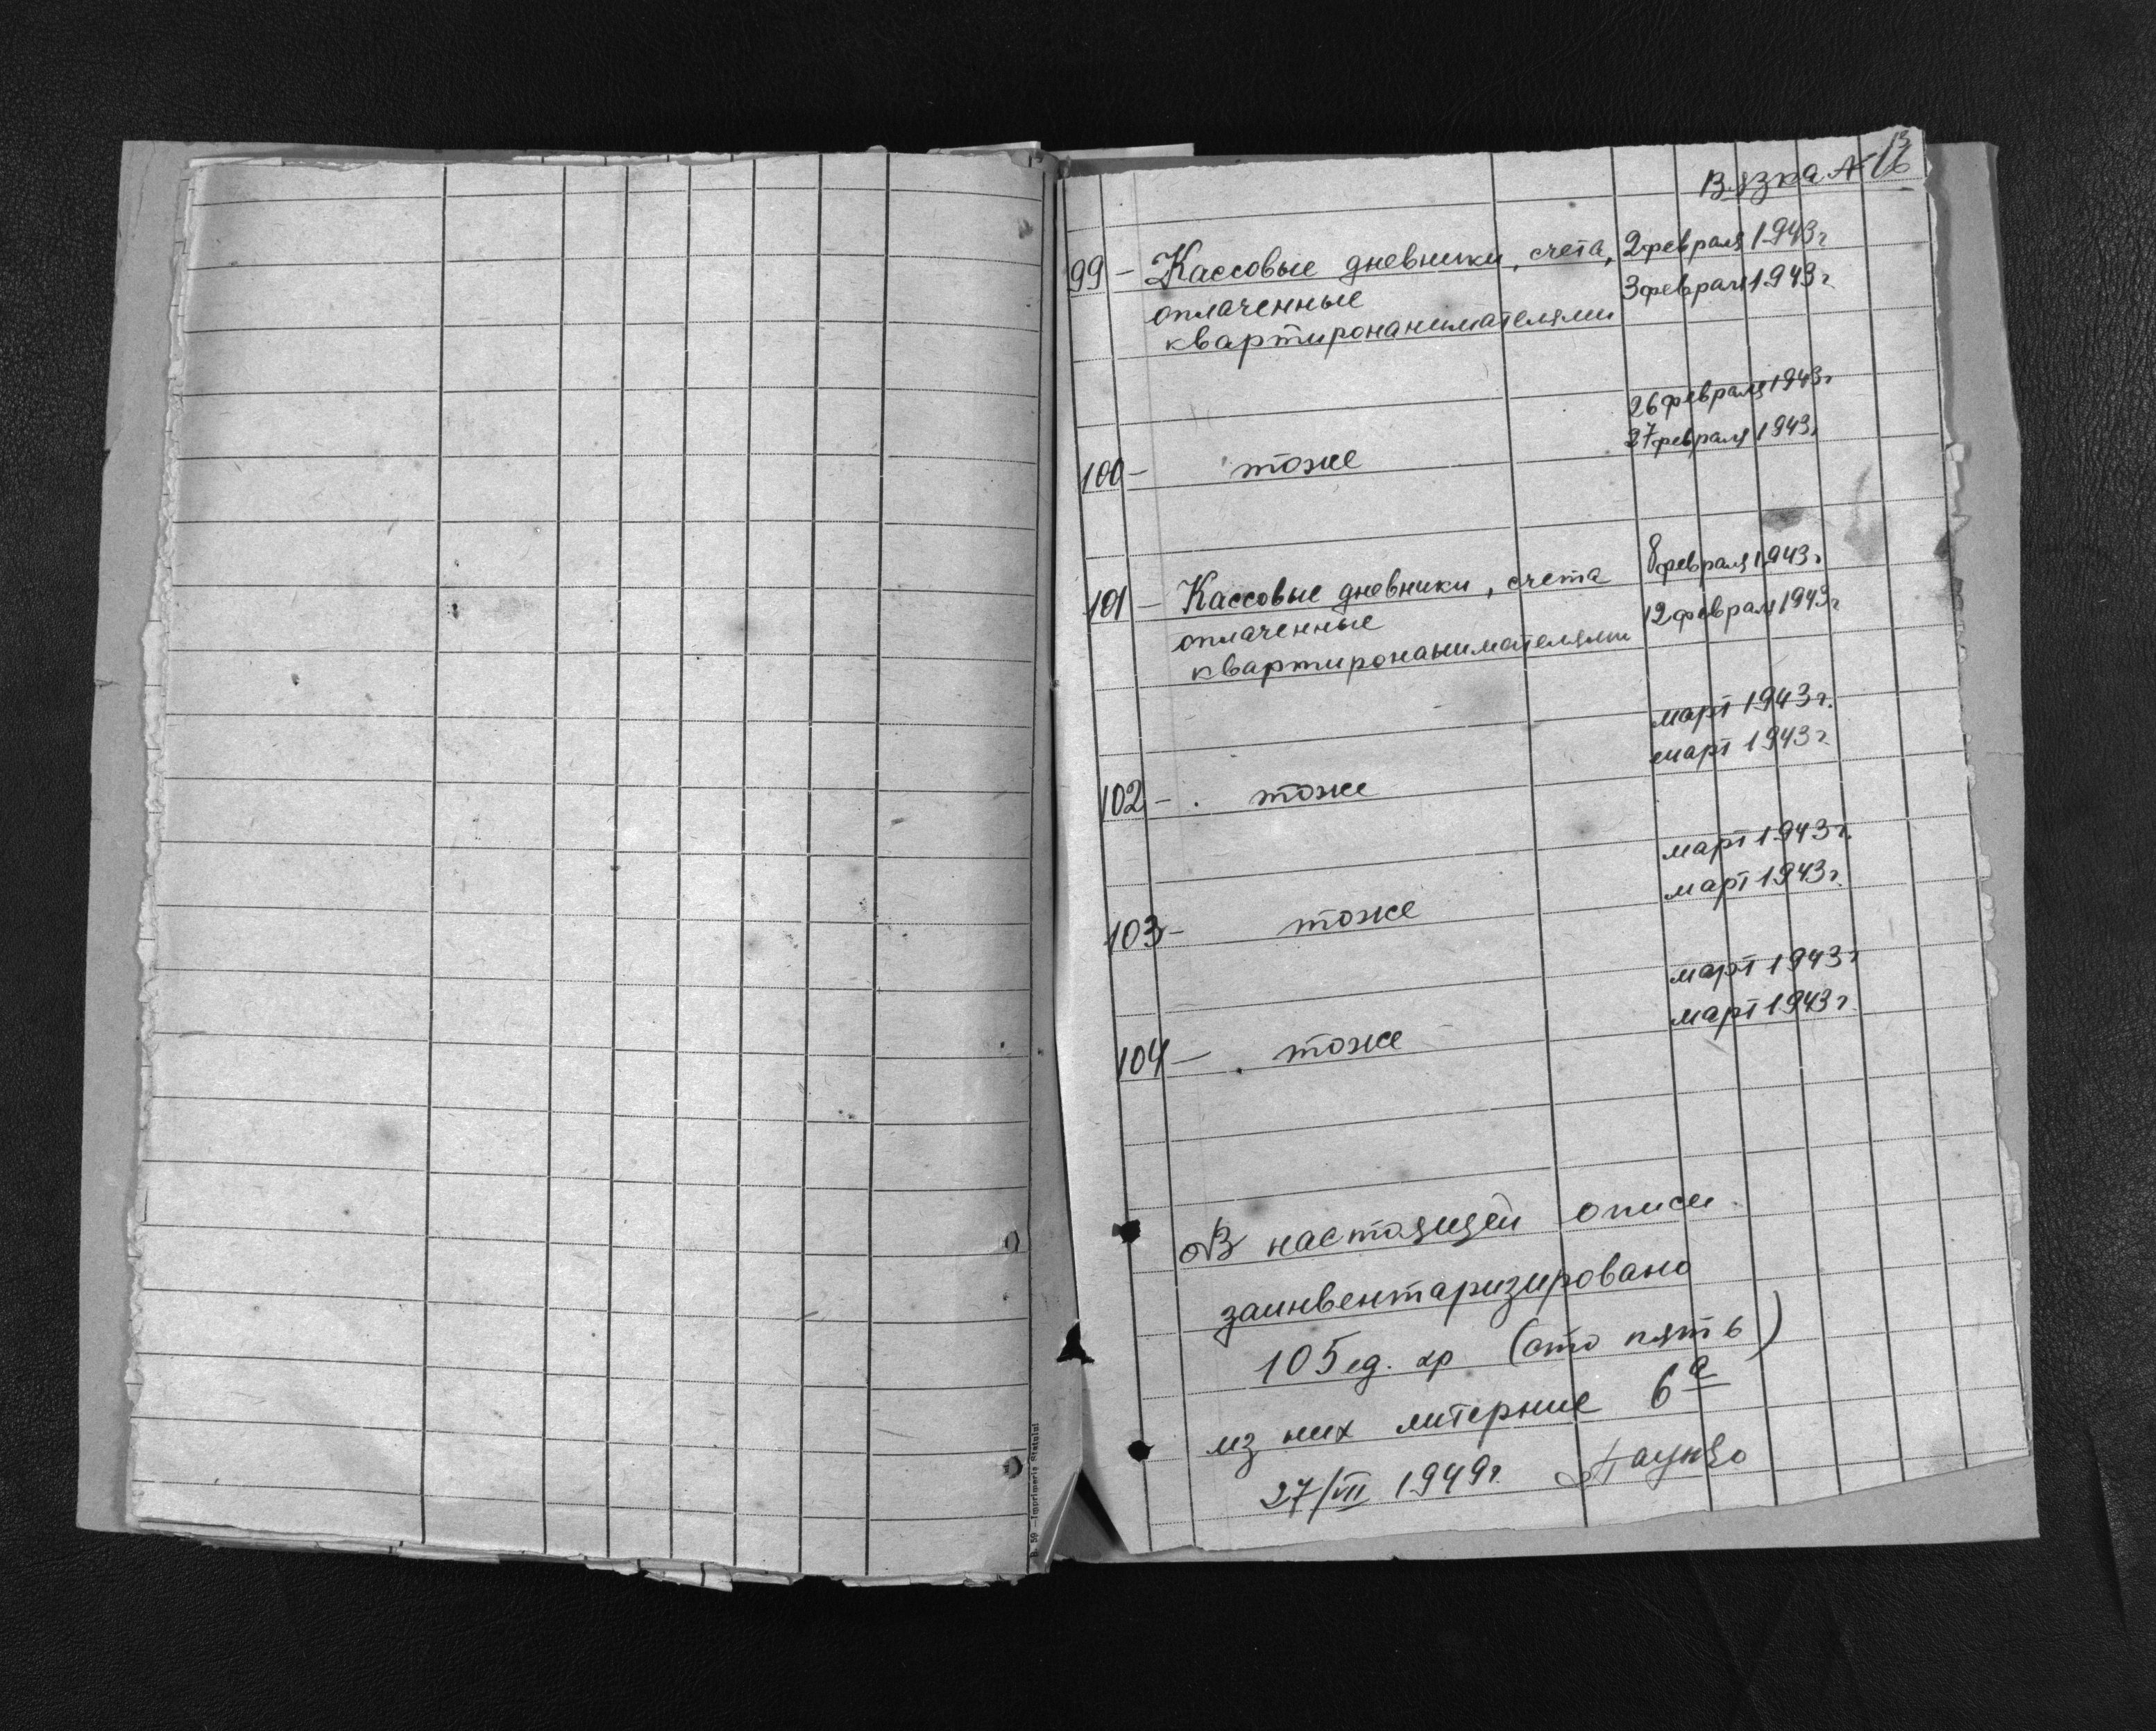 Вязка №
99 - Кассовые дневники, счета, 2 февраля 1943 г
оплаченные 3 февраля 1943 г
квартиронанимателями
26 февраля 1943 г
27 февраля 1943 г
100 - тоже
101 - Кассовые дневники, счета 8 февраля 1943 г
оплаченные 12 февраля 1943 г
квартиронанимателями
март 1943 г.
март 1943 г
102 - . тоже
март 1943 г.
март 1943 г.
103 - тоже
март 1943 г
март 1943 г.
104 - . тоже
В настоящей описи
заинвентаризировано
105 ед. хр (сто пять)
из них литерные 6а
27/VII 1949 г.
B. 59 — Imprimeria Statului